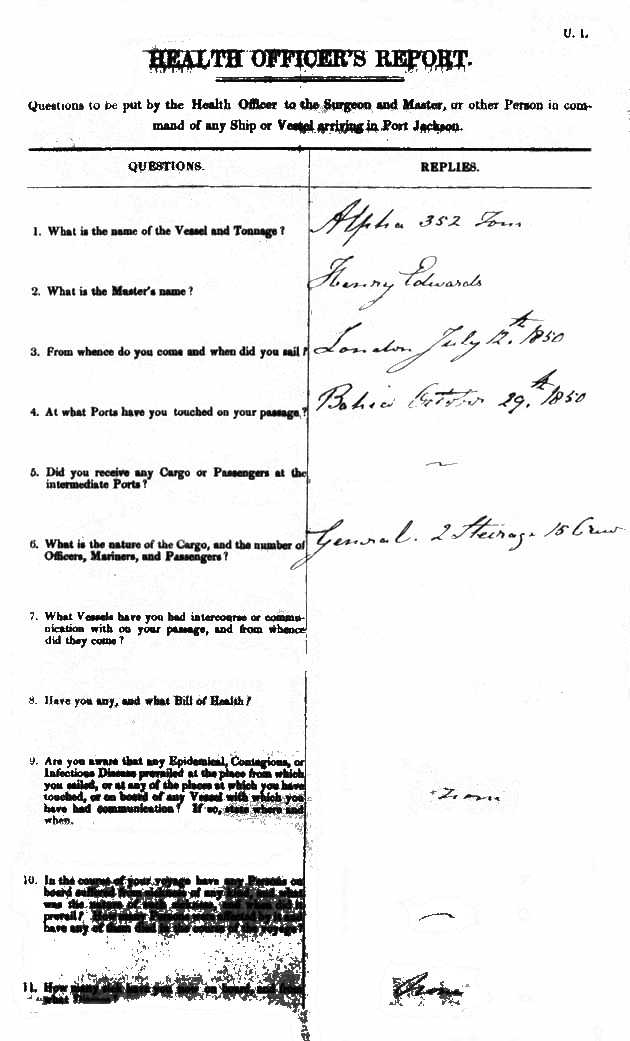 U. 1.
HEALTH OFFICER'S REPORT.
Questions to be put by the Health Officer to the Surgeon and Master, or other Person in com-
mand of any Ship or Vessel arriving in Port Jackson.
QUESTIONS. REPLIES.
1. What is the name of the Vessel and Tonnage? Alpha 352 Tons
2. What is the Master's name? Henry Edwards
3. From whence do you come and when did you sail? London July 12.th 1850
4. At what Ports have you touched on your passage? Bahia October 29.th 1850
5. Did you receive any Cargo or Passengers at the
intermediate Ports? ~
6. What is the nature of the Cargo, and the number of
Officers, Mariners, and Passengers? General. 2 Steerage 15 Crew
7. What Vessels have you had intercourse or commu-
nication with on your passage, and from whence
did they come?
8. Have you any, and what Bill of Health?
9. Are you aware that any Epidemical, Contagious, or
Infectious Disease prevailed at the place from which
you sailed, or at any of the places at which you have
touched, or on board of any Vessel with which you
have had communication? If so, state where and
when. None
10. In the course of your voyage have any Persons on
board suffered from sickness of any kind, and what
was the nature of such sickness, and when did it
prevail? How many Persons were affected by it and
have any of them died in the course of the voyage?
11. How many sick have you now on board, and from
what Disease? None